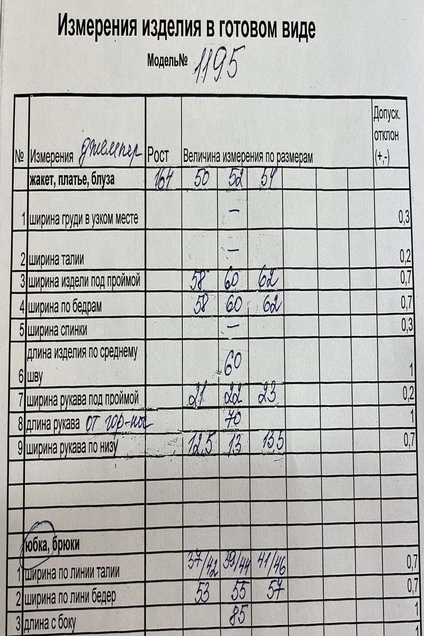 Измерения изделия в готовом виде
Модель№ 1195
№ Измерения джемпер Рост Величина измерения по размерам Допуск. отклон (+,-)
жакет, платье, блуза 164 50 52 54
1 ширина груди в узком месте – 0,3
2 ширина талии – 0,2
3 ширина издели под проймой 58 60 62 0,7
4 ширина по бедрам 58 60 62 0,7
5 ширина спинки – 0,3
длина изделия по среднему
6 шву 60 1
7 ширина рукава под проймой 21 22 23 0,2
8 длина рукава от гор-ны 70 1
9 ширина рукава по низу 12,5 13 13,5 0,7
юбка, брюки
1 ширина по линии талии 37/42 39/44 41/46 0,7
2 ширина по лини бедер 53 55 57 0,7
3 длина с боку 85 1